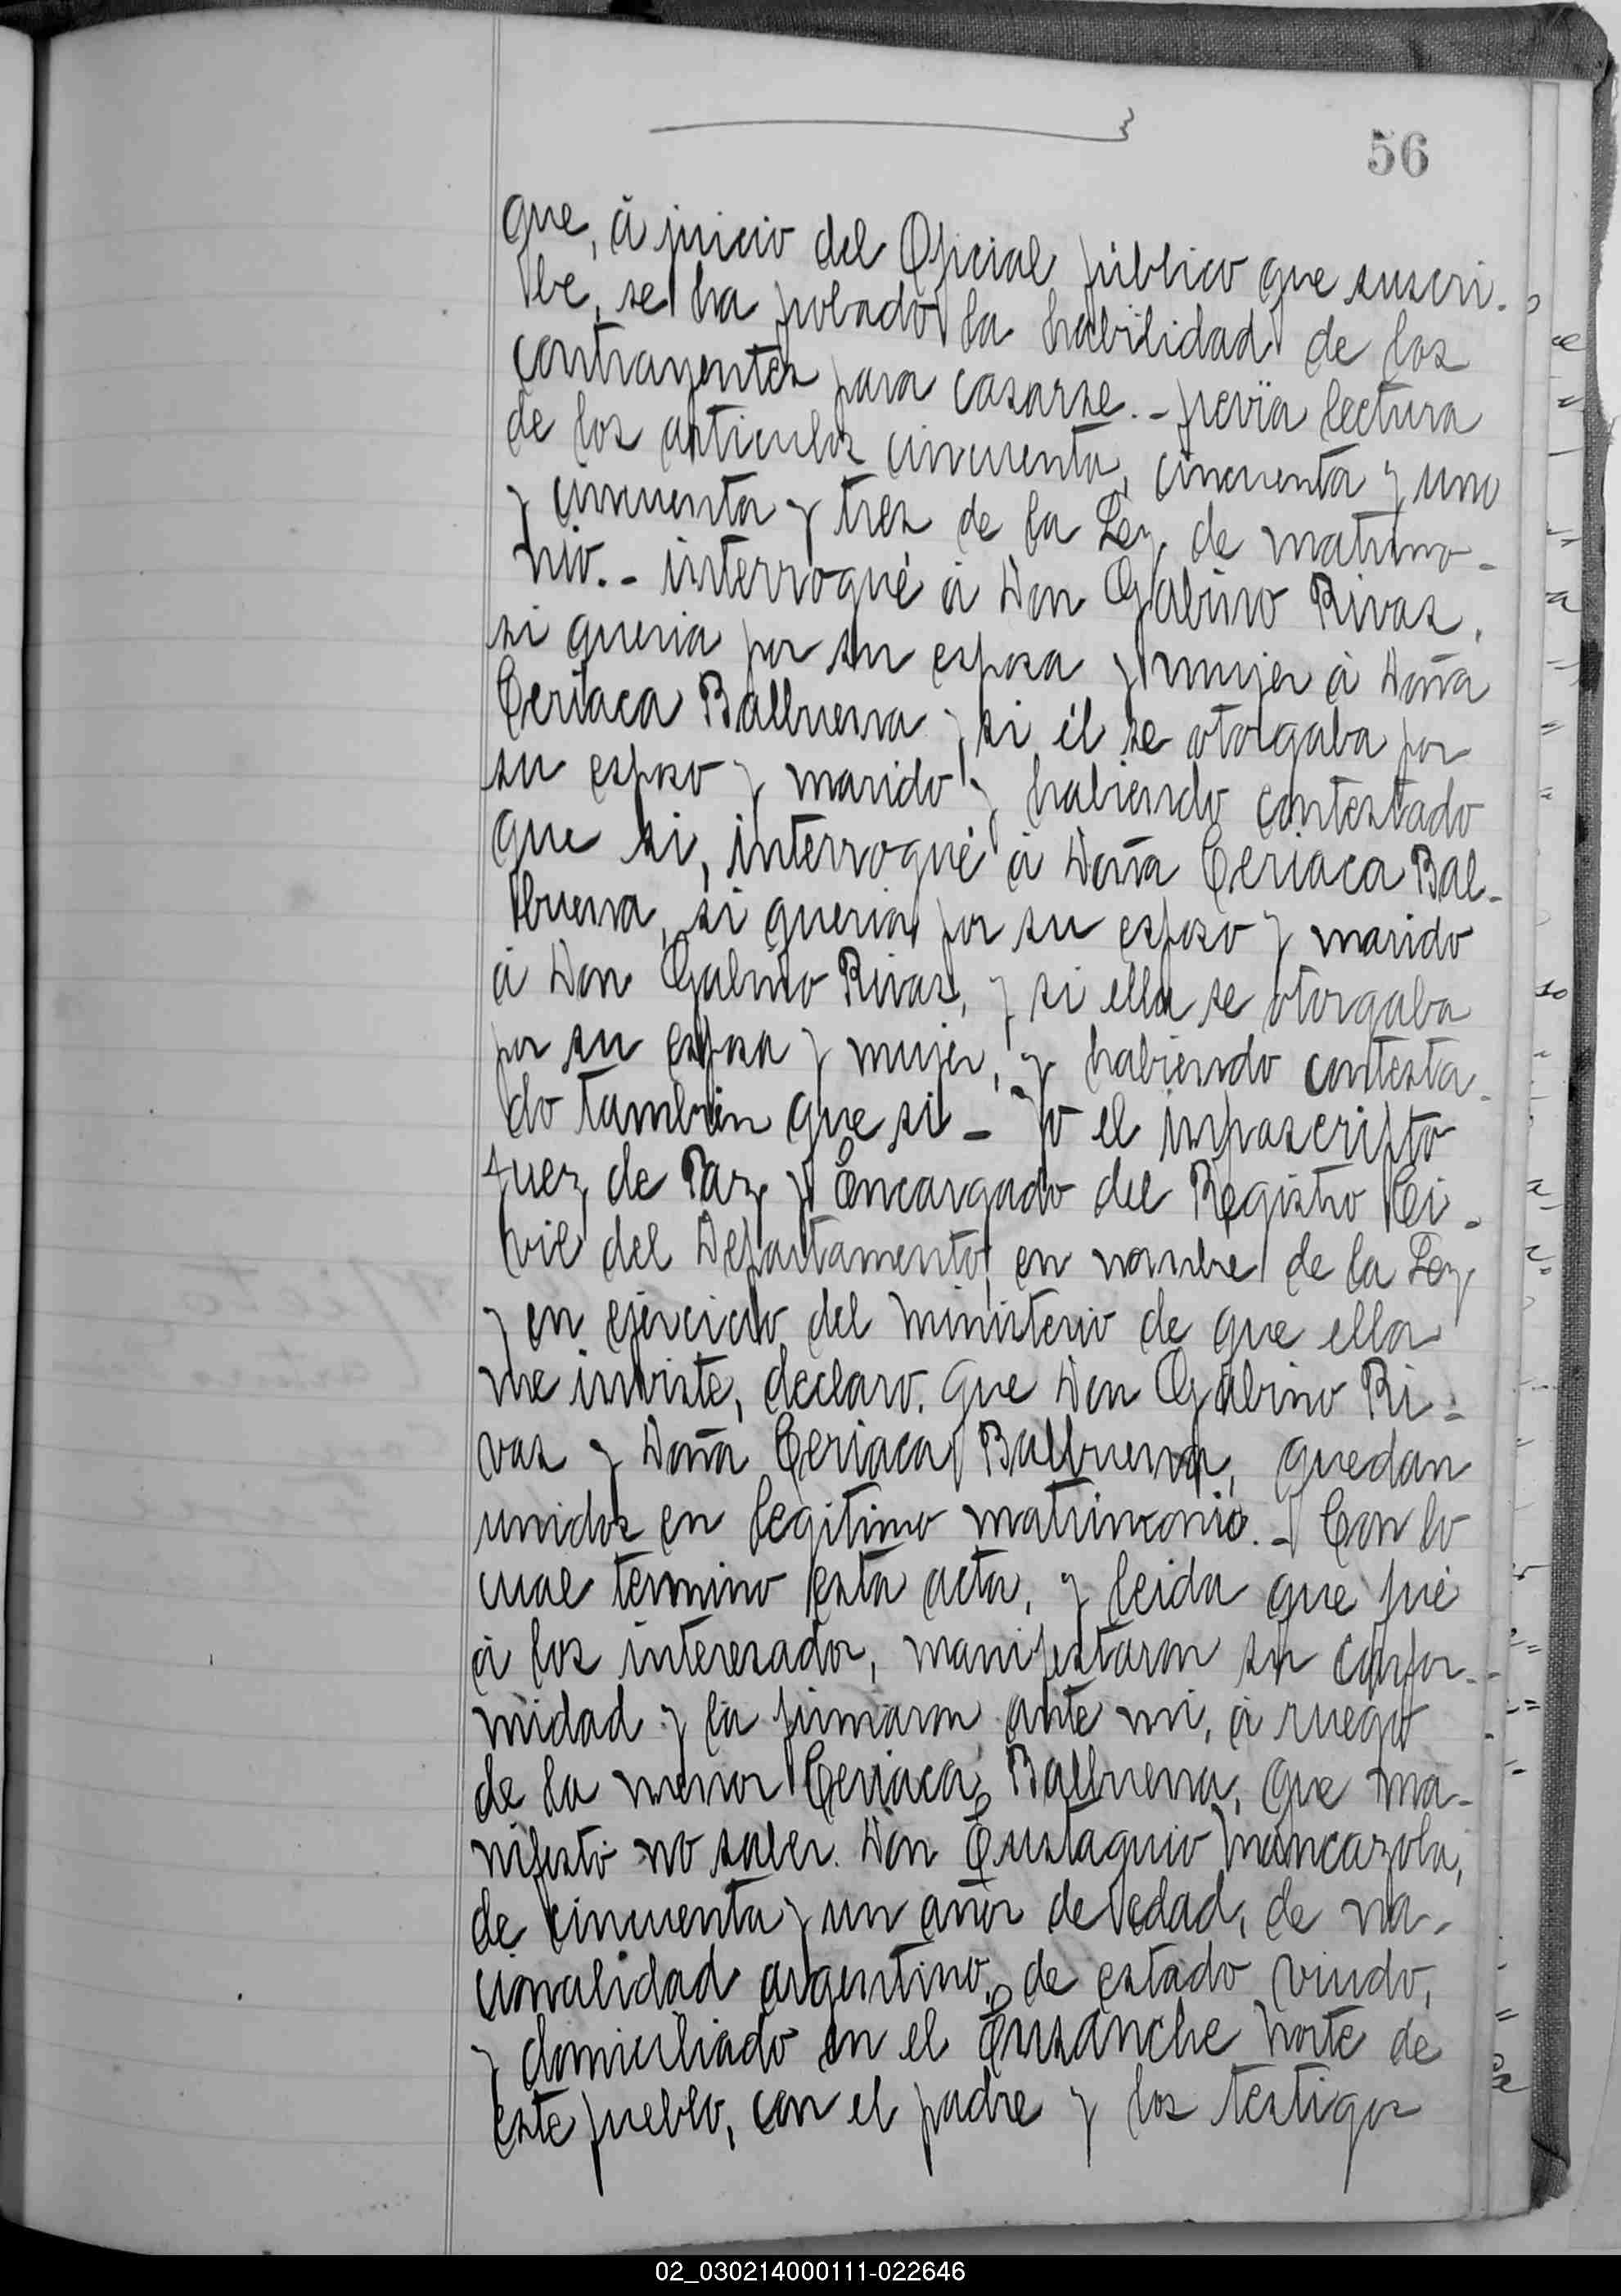 56
que, á juicio del Oficial público que suscri-
be, se ha probado la habilidad de los
contrayentes para casarse.- previa lectura
de los articulos cincuenta, cincuenta y uno
y cincuenta y tres de la Ley de matrimo-
nio.- interrogué á Don Gabino Rivas,
si queria por su esposa y mujer á Doña
Ceriaca Balbuena y si él se otorgaba por
su esposo y marido y habiendo contestado
que si, interrogué á Doña Ceriaca Bal-
buena, si queria por su esposo y marido
á Don Gabino Rivas, y si ella se otorgaba
por su esposa y mujer, y habiendo contesta-
do tambien que si - Yo el infrascripto
Juez de Paz y Encargado del Registro Ci-
vil del Departamento, en nombre de la Ley
y en ejercicio del ministerio de que ella
me inviste, declaro, que Don Gabino Ri-
vas y Doña Ceriaca Balbuena, quedan
unidos en legitimo matrimonio.- Con lo
cual termino esta acta, y leida que fué
á los interesados, manifestaron su confor-
midad y la firmaron ante mi, á ruego
de la menor Ceriaca Balbuena, que ma-
nifestó no saber. Don Eustaquio Mancazola,
de cincuenta y un años de edad, de na-
cionalidad argentino, de estado viudo,
y domiciliado en el Ensanche Norte de
este pueblo, con el padre y los testigos
02_030214000111-022646